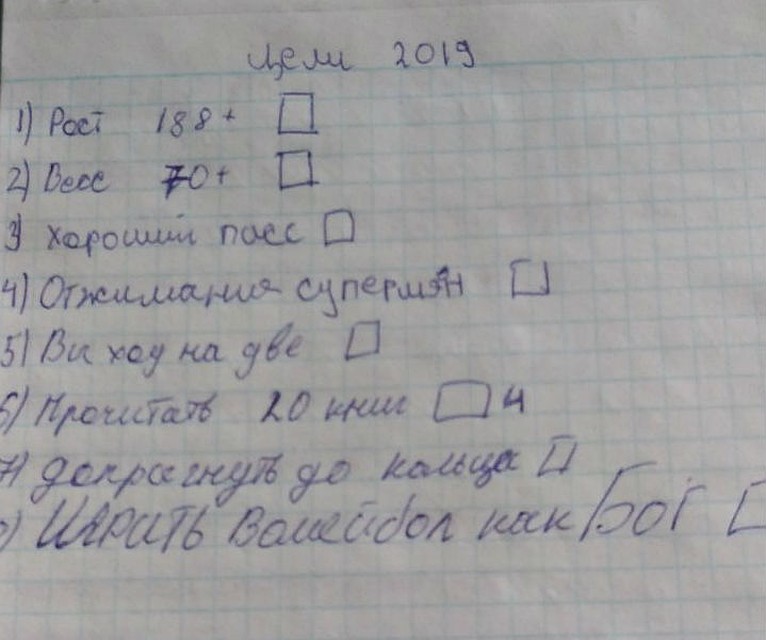 Цели 2019
1) Рост 188+
2) Весс 70+
3) Хороший пасс
4) Отжимания супермэн
5) Выход на две
6) Прочитать 20 книг 4
7) допрыгнуть до кольца
) ИГРАТЬ Волейбол как Бог